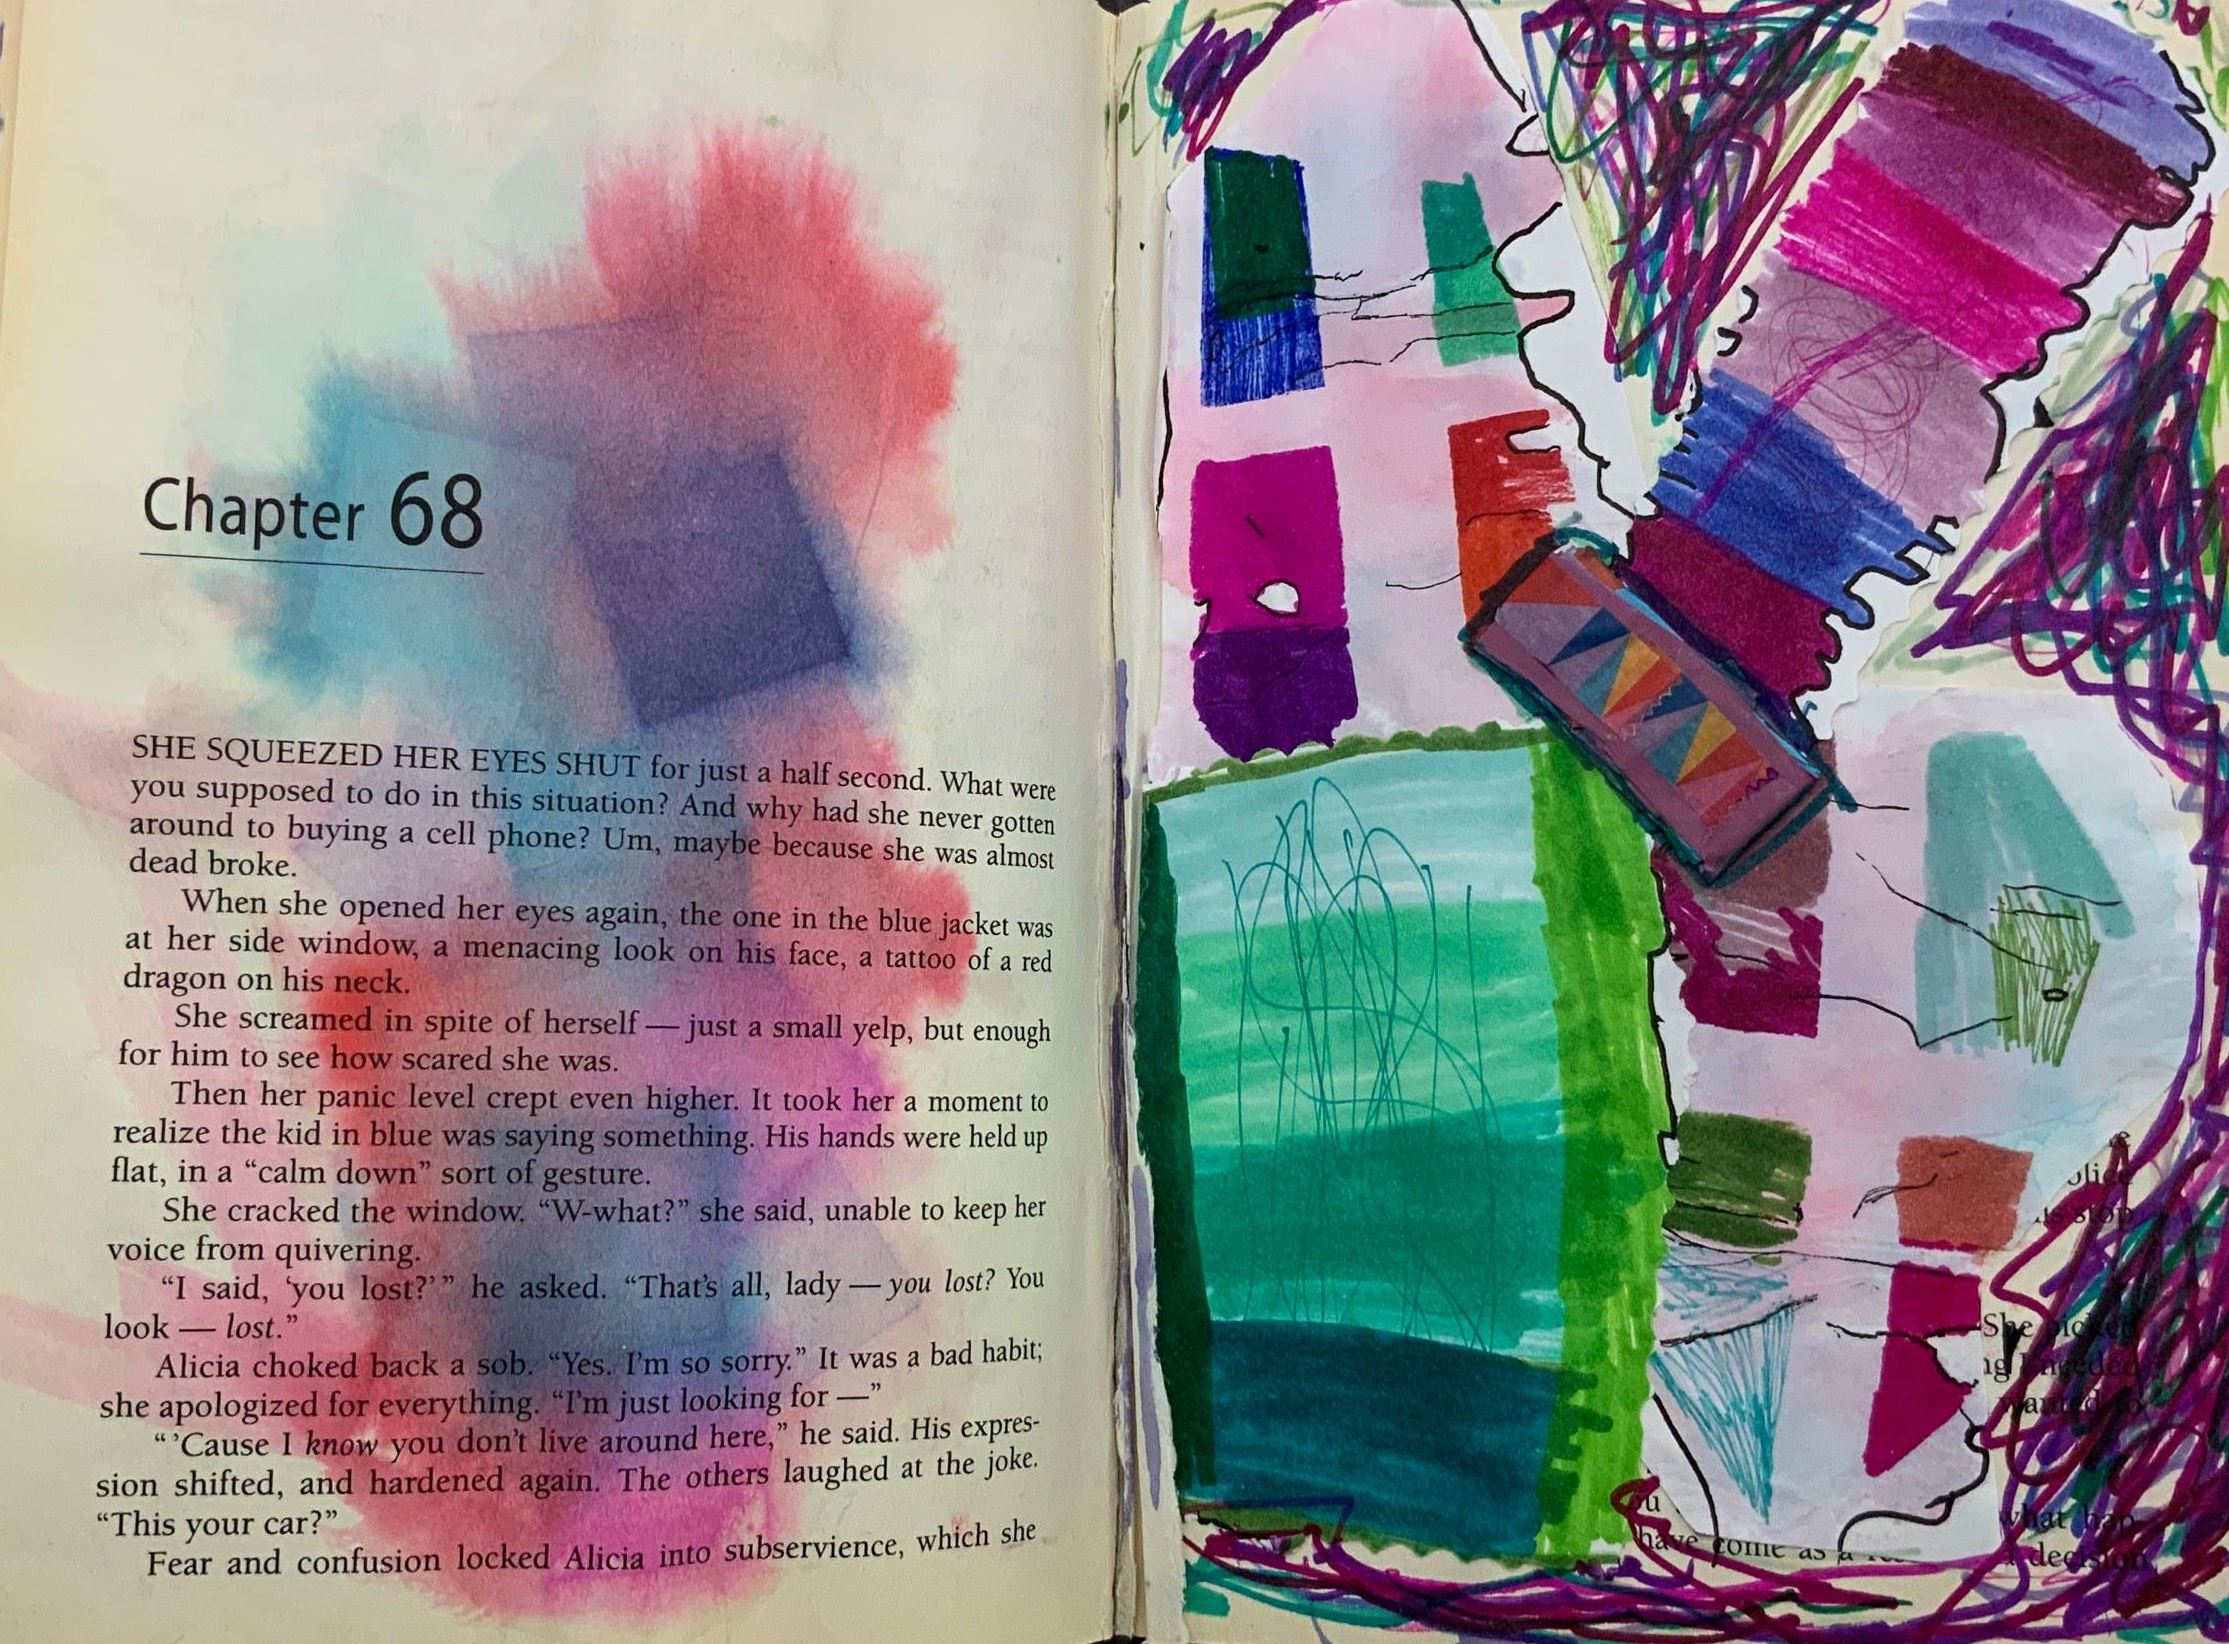 Chapter 68
SHE SQUEEZED HER EYES SHUT for just a half second. What were
you supposed to do in this situation? And why had she never gotten
around to buying a cell phone? Um, maybe because she was almost
dead broke.
When she opened her eyes again, the one in the blue jacket was
at her side window, a menacing look on his face, a tattoo of a red
dragon on his neck.
She screamed in spite of herself — just a small yelp, but enough
for him to see how scared she was.
Then her panic level crept even higher. It took her a moment to
realize the kid in blue was saying something. His hands were held up
flat, in a “calm down” sort of gesture.
She cracked the window. “W-what?” she said, unable to keep her
voice from quivering.
“I said, ‘you lost?’” he asked. “That’s all, lady — you lost? You
look — lost.”
Alicia choked back a sob. “Yes. I’m so sorry.” It was a bad habit;
she apologized for everything. “I’m just looking for —”
“ ’Cause I know you don’t live around here,” he said. His expres-
sion shifted, and hardened again. The others laughed at the joke.
“This your car?”
Fear and confusion locked Alicia into subservience, which she
stop
She picked
wanted to
what hap-
have come as a
decision